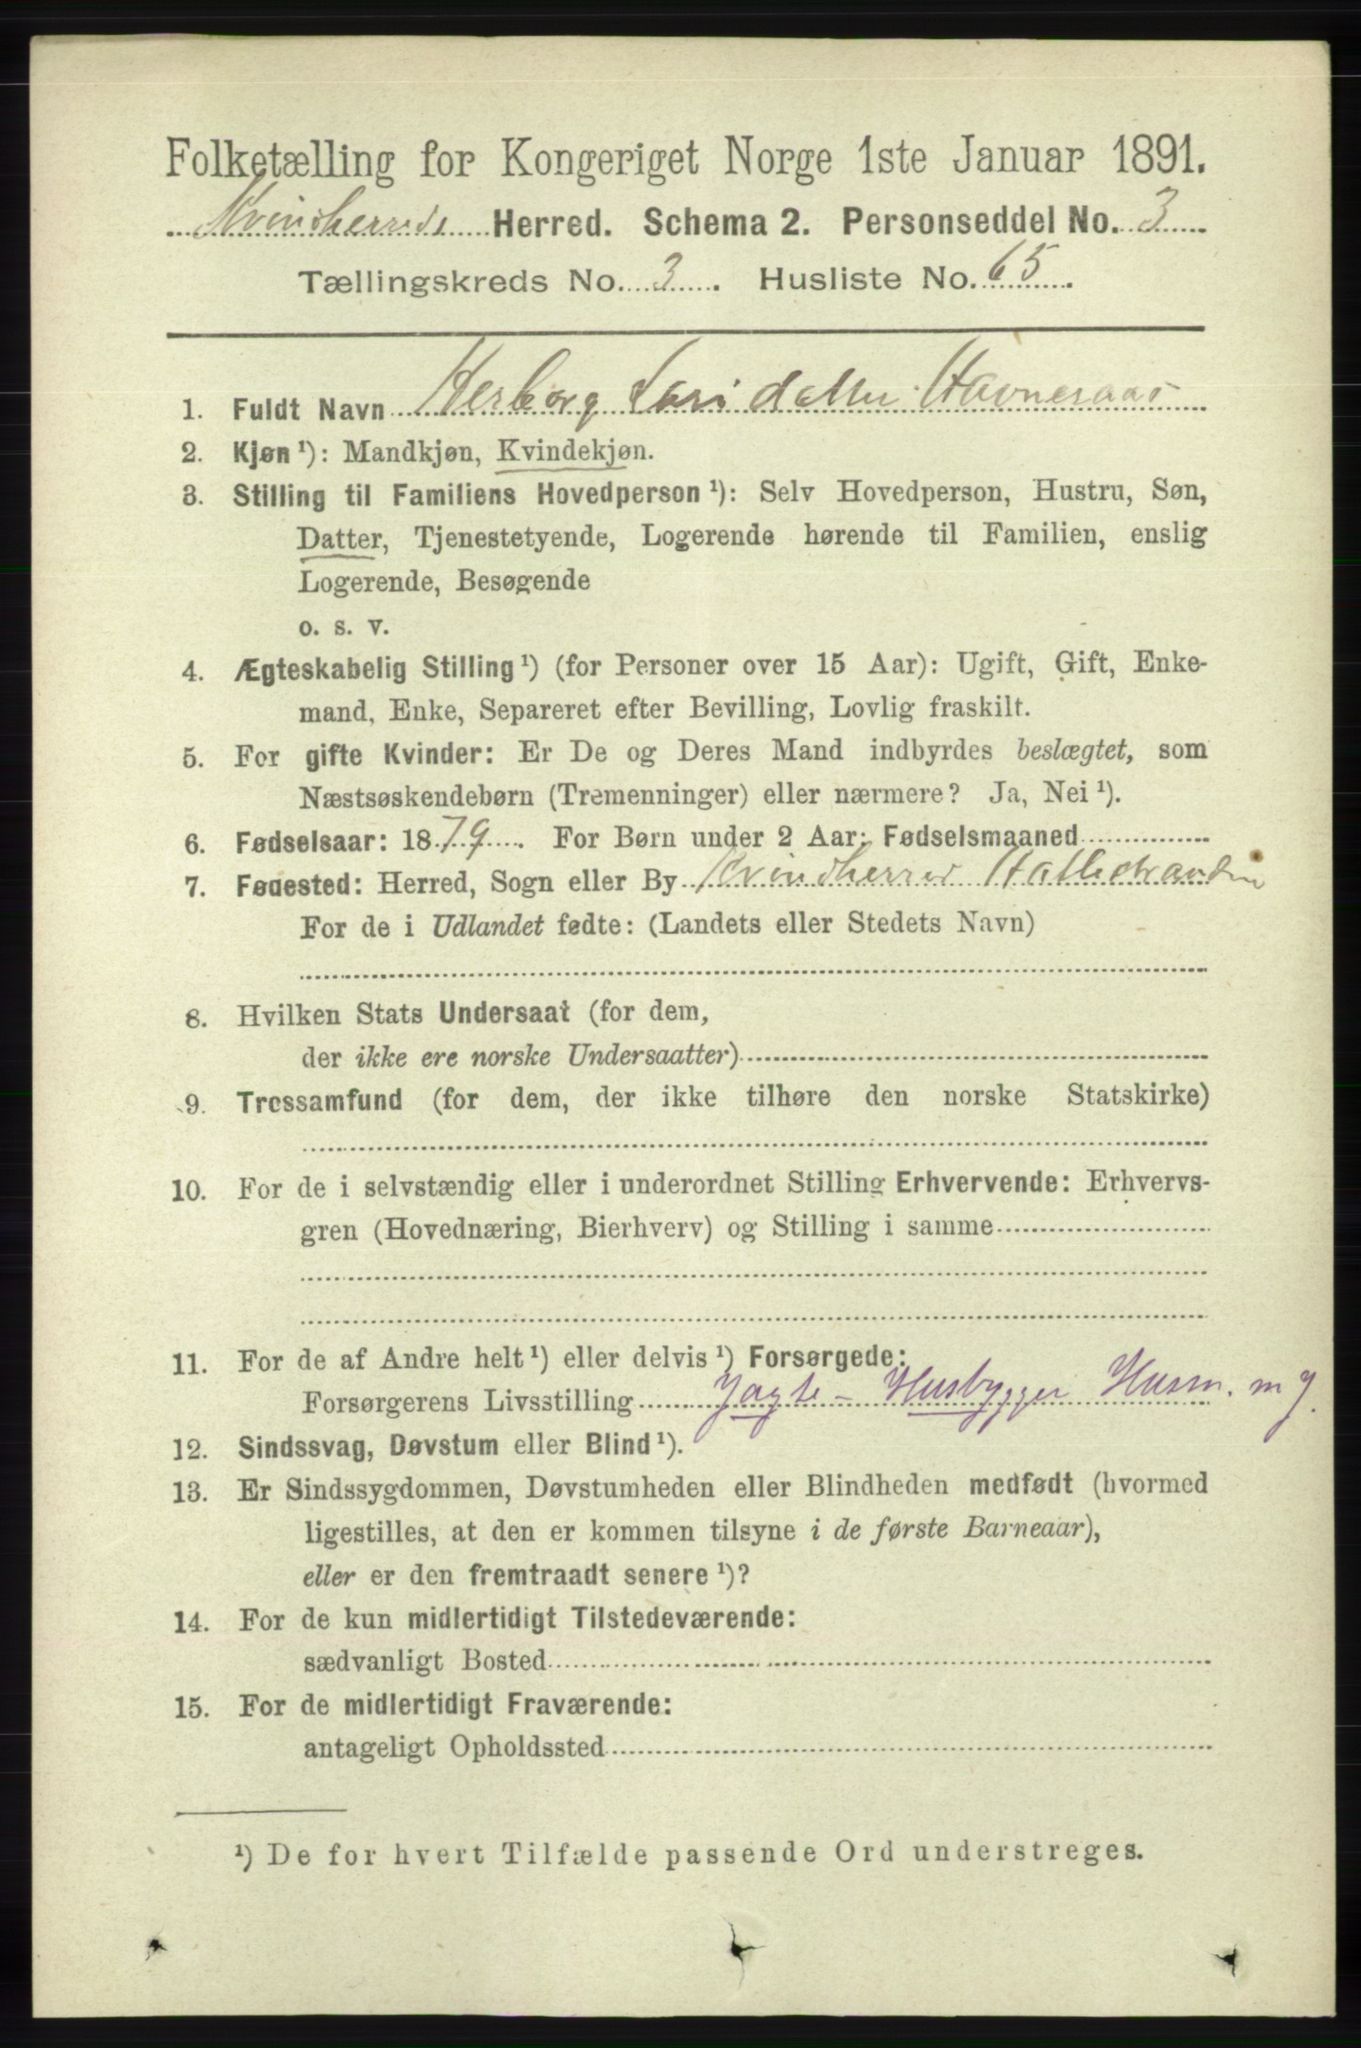 Folketælling for Kongeriget Norge 1ste Januar 1891.
Kvindherreds Herred. Schema 2. Personseddel No. 3
Tællingskreds No. 3. Husliste No. 65.
1. Fuldt Navn Herborg Larsdatter Havneraas
2. Kjøn ¹): Mandkjøn, Kvindekjøn.
3. Stilling til Familiens Hovedperson ¹): Selv Hovedperson, Hustru, Søn,
Datter, Tjenestetyende, Logerende hørende til Familien, enslig
Logerende, Besøgende
o. s. v.
4. Ægteskabelig Stilling ¹) (for Personer over 15 Aar): Ugift, Gift, Enke-
mand, Enke, Separeret efter Bevilling, Lovlig fraskilt.
5. For gifte Kvinder: Er De og Deres Mand indbyrdes beslægtet, som
Næstsøskendebørn (Tremenninger) eller nærmere? Ja, Nei ¹).
6. Fødselsaar: 1879. For Børn under 2 Aar: Fødselsmaaned
7. Fødested: Herred, Sogn eller By Kvindherred
For de i Udlandet fødte: (Landets eller Stedets Navn)
8. Hvilken Stats Undersaat (for dem,
der ikke ere norske Undersaatter)
9. Trossamfund (for dem, der ikke tilhøre den norske Statskirke)
10. For de i selvstændig eller i underordnet Stilling Erhvervende: Erhvervs-
gren (Hovednæring, Bierhverv) og Stilling i samme
11. For de af Andre helt ¹) eller delvis ¹) Forsørgede:
Forsørgerens Livsstilling Jagte-Husbygger Husm. m J.
12. Sindssvag, Døvstum eller Blind ¹).
13. Er Sindssygdommen, Døvstumheden eller Blindheden medfødt (hvormed
ligestilles, at den er kommen tilsyne i de første Barneaar),
eller er den fremtraadt senere ¹)?
14. For de kun midlertidigt Tilstedeværende:
sædvanligt Bosted
15. For de midlertidigt Fraværende:
antageligt Opholdssted
¹) De for hvert Tilfælde passende Ord understreges.